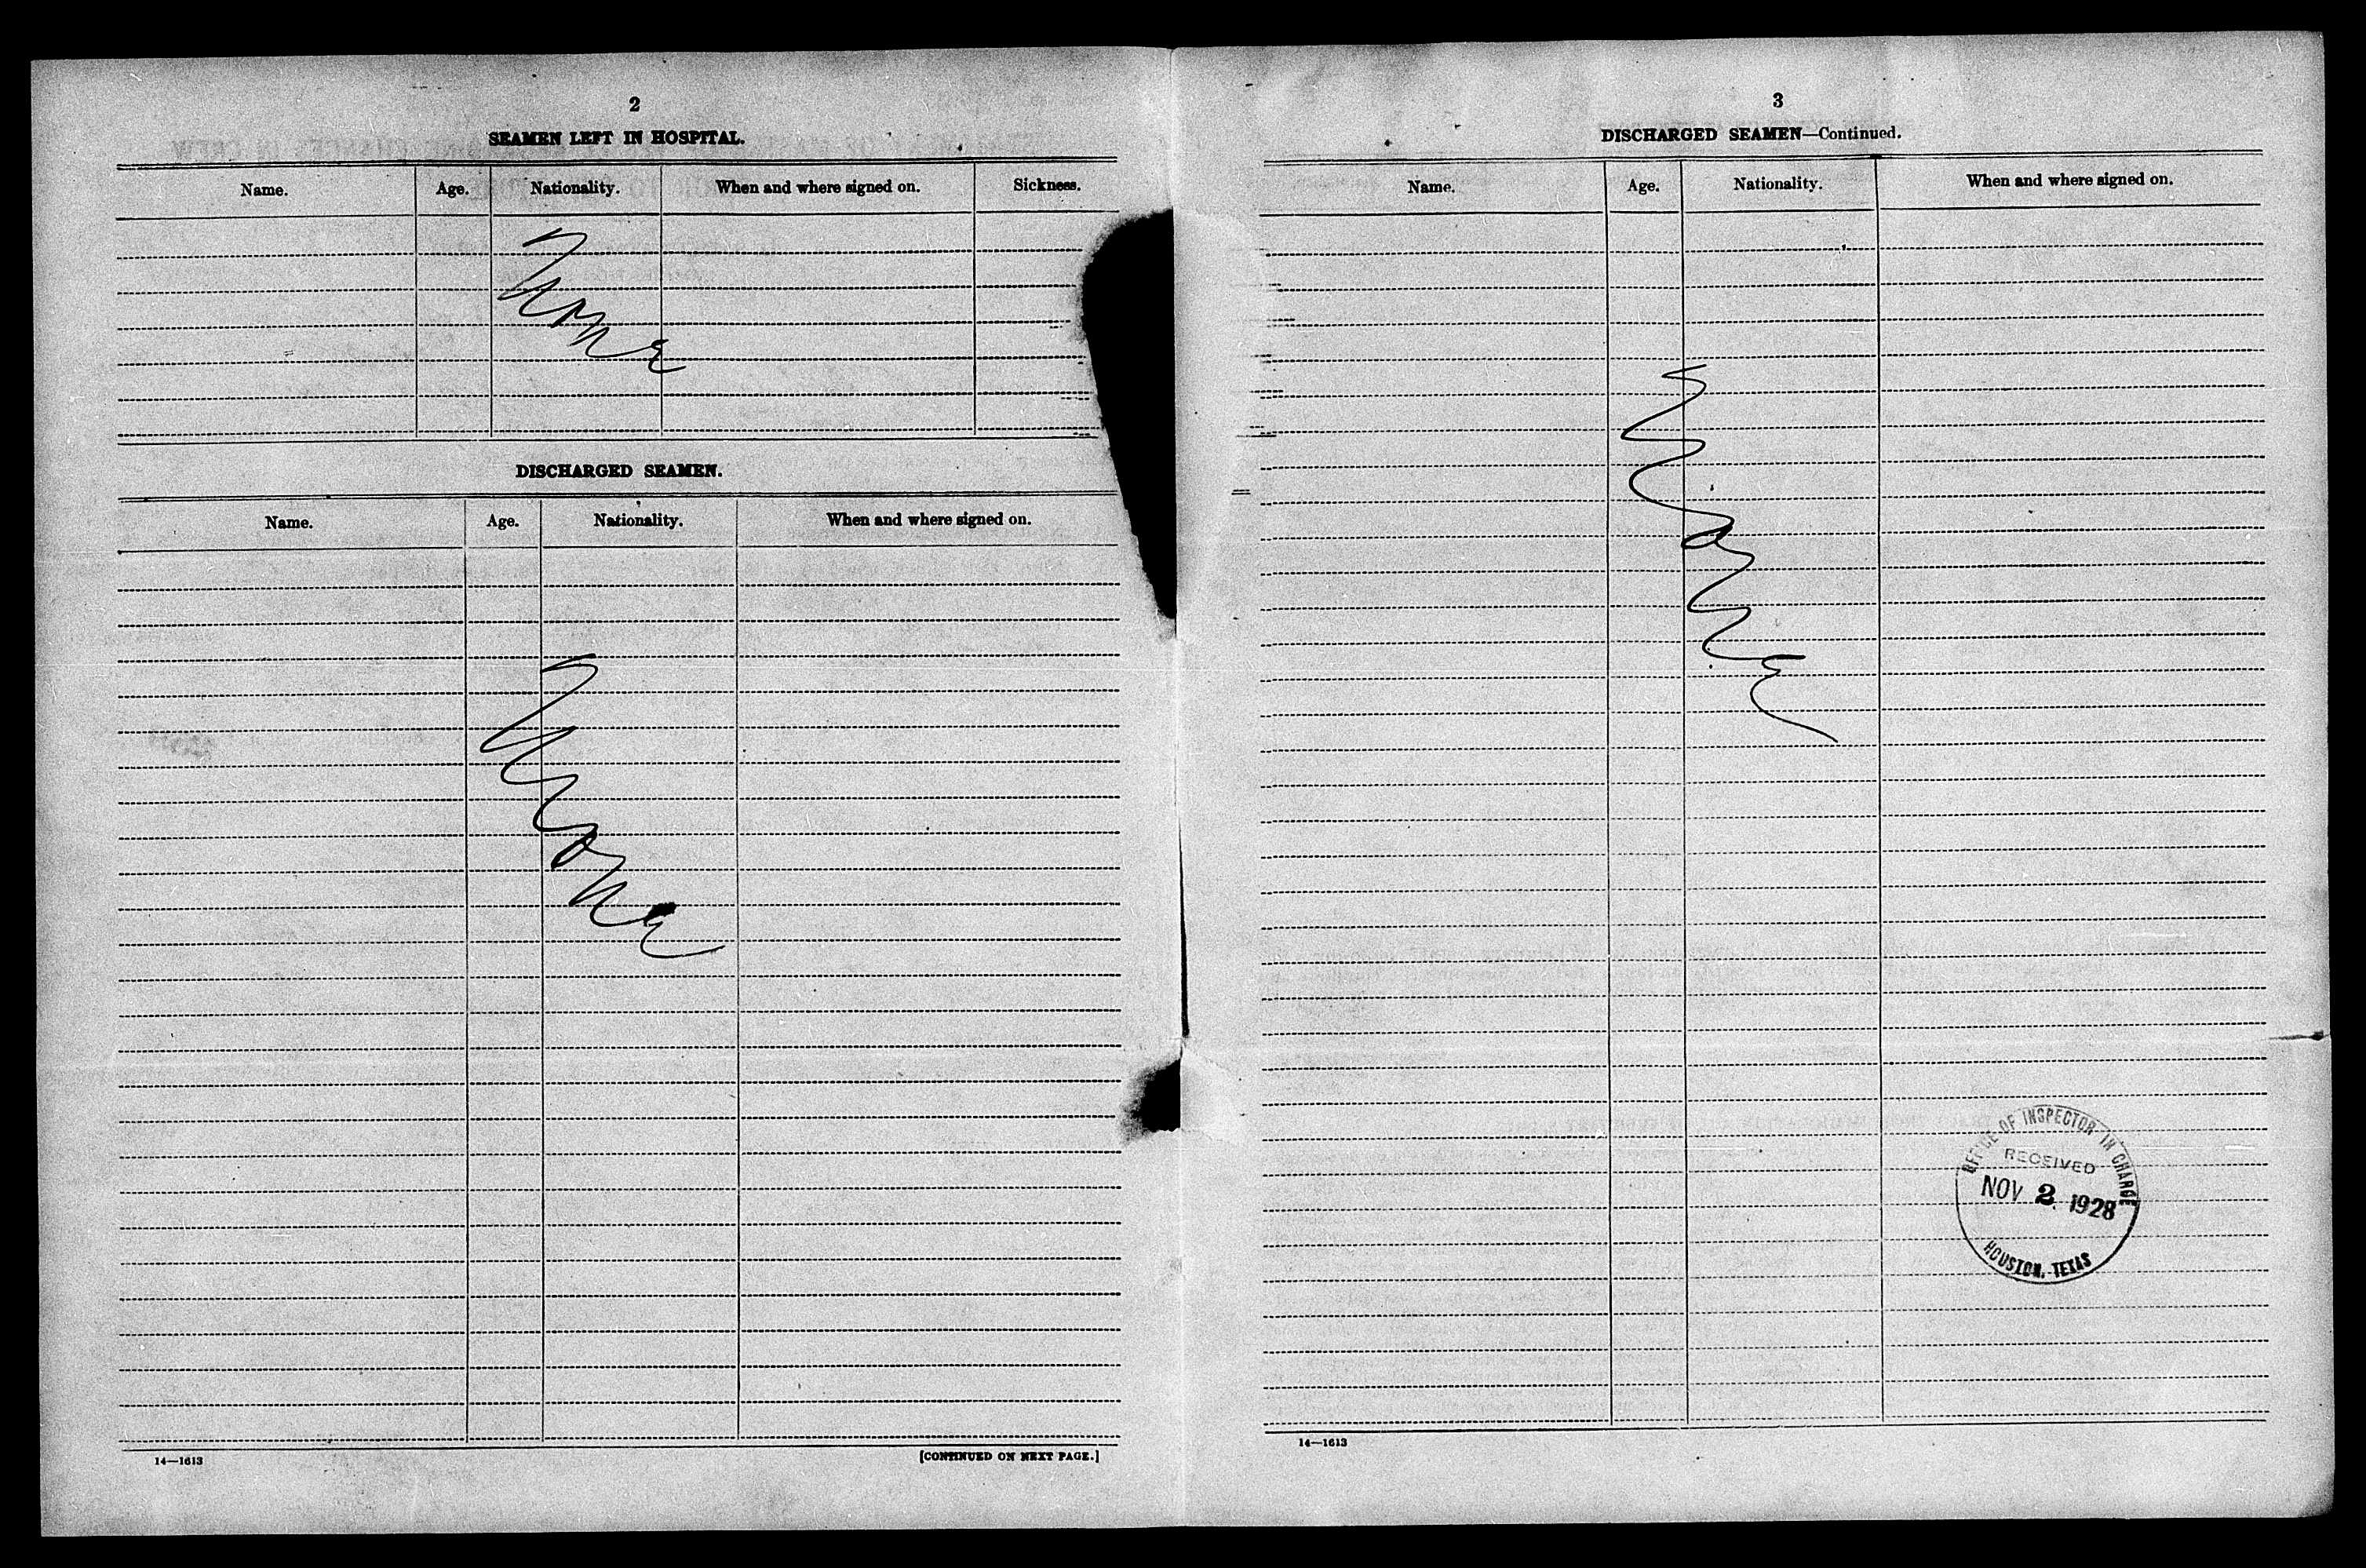 2
SEAMEN LEFT IN HOSPITAL.
Name. Age. Nationality. When and where signed on. Sickness.
None
DISCHARGED SEAMEN.
Name. Age. Nationality. When and where signed on.
None
14—1613 [CONTINUED ON NEXT PAGE.]
3
DISCHARGED SEAMEN—Continued.
Name. Age. Nationality. When and where signed on.
None
OFFICE OF INSPECTOR IN CHARGE
RECEIVED
NOV 2 1928
HOUSTON, TEXAS
14—1613